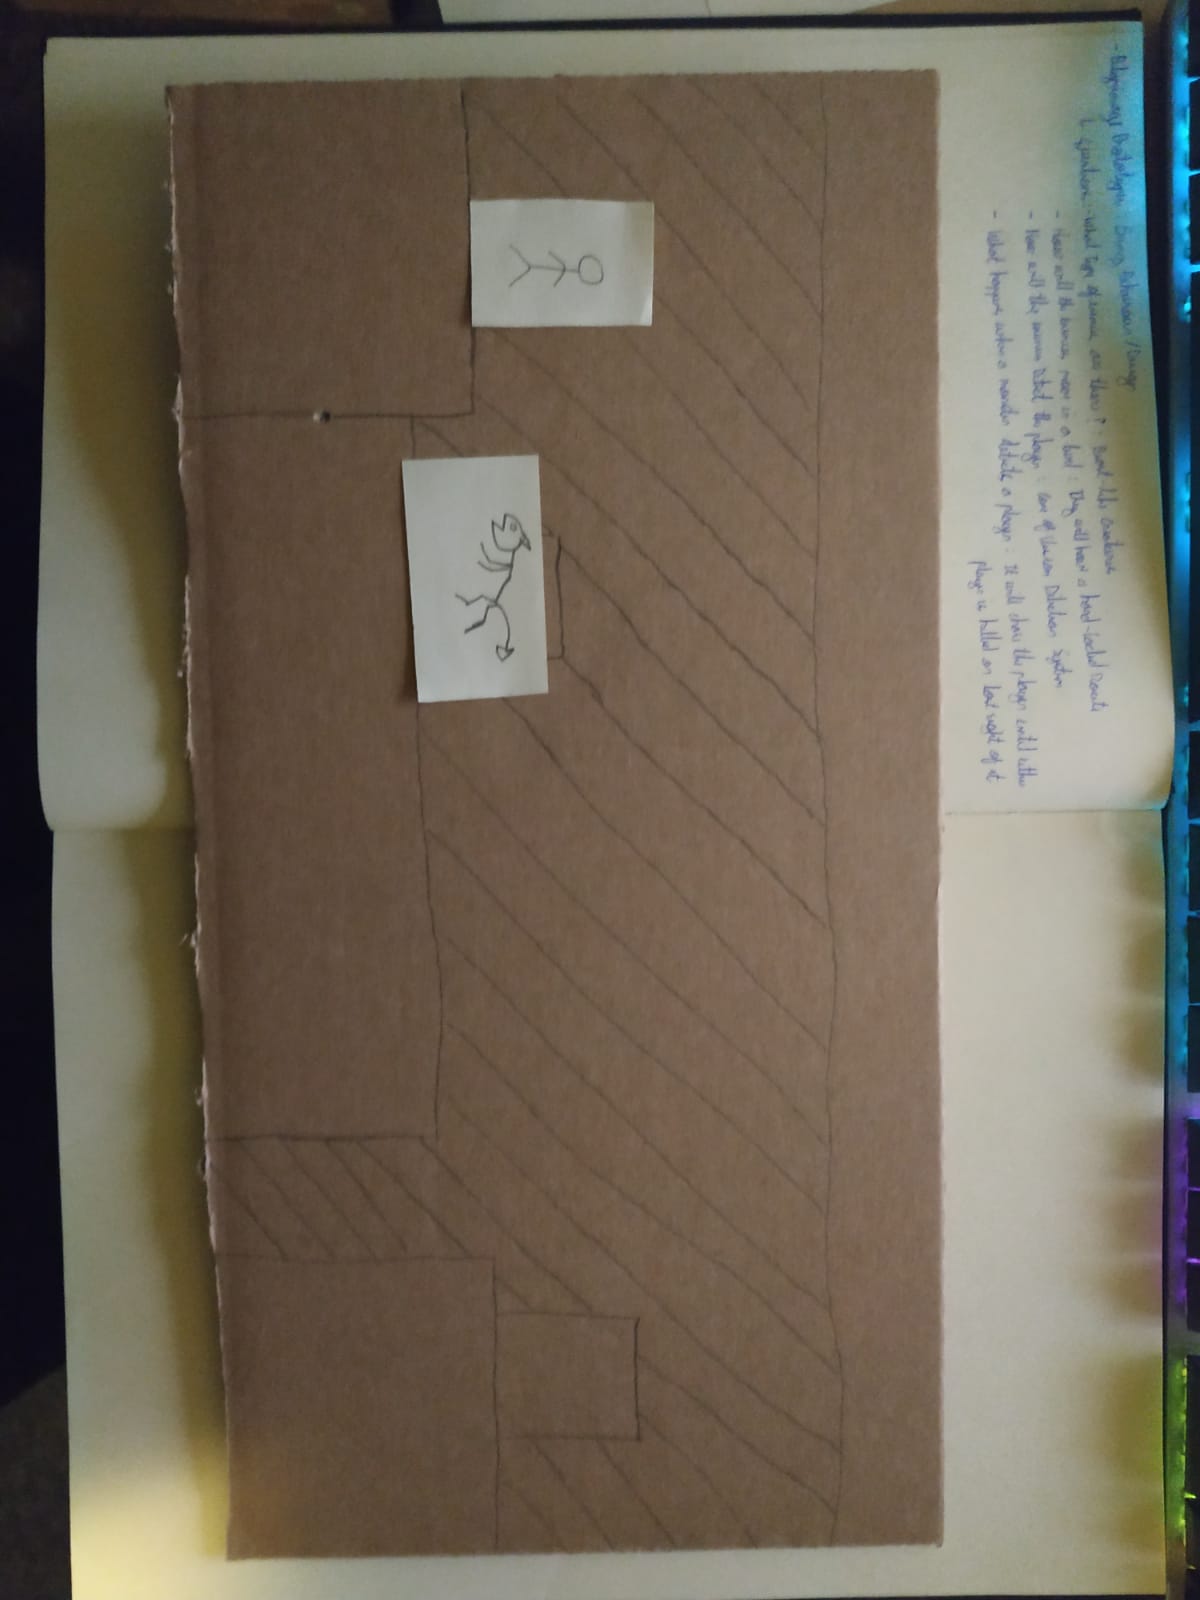 - Pilgrimage Prototype: Enemy Behaviour/Design
↳ Questions: - What Type of enemies are there?: Beast-like Creatures
- How will the enemies move in a level: They will have a hard-coded Route
- How will the enemies Detect the player: Cone of Vision Detection System
- What happens when a monster detects a player: It will chase the player until either
player is killed or lost sight of it